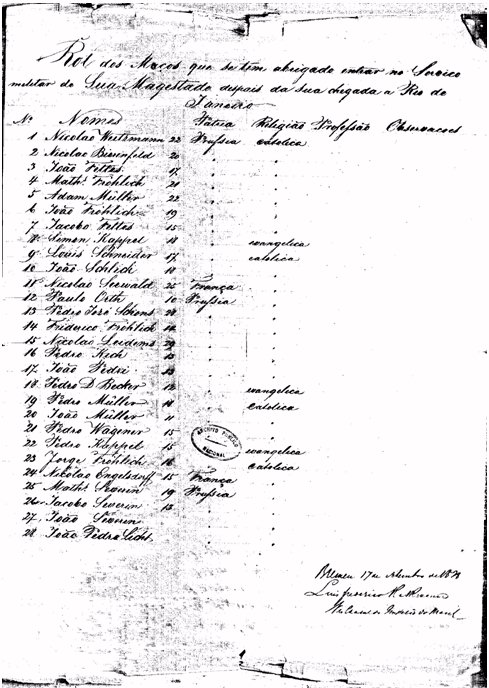 Rol dos Moços que se tem obrigado entrar no Serviço
militar de Sua Magestade despois da sua chegada a Rio de
Janeiro
No Nomes Patria Religião Professão Observacoes
1 Nicolao Weitzmann 22 Prussia catolica
2 Nicolao Bisenfeld 20 " "
3 João Felles 17 " "
4 Math. Fröhlich 21 " "
5 Adam Müller 22 " "
6 João Fröhlich 19 " "
7 Jacobo Felles 15 " "
8 Simon Kappel 18 " evangelica
9 Louis Schneider 17 " catolica
10 João Schlich 18 " "
11 Nicolao Seewald 26 França "
12 Paulo Orth 10 Prussia "
13 Pedro José " "
14 Friderico Fröhlich " "
15 Nicolao " "
16 Pedro Kech 13 " "
17 João Pedri 13 " "
18 Pedro D Becker 12 " evangelica
19 Pedro Müller 11 " catolica
20 João Müller 11 " "
21 Pedro Wagener 15 "
22 Pedro Kappel 15 evangelica
23 Jorge Fröhlich 16 catolica
24 Nicolao Engelsdorff 15 França "
25 Math. 19 Prussia "
26 Jacobo Severin 13 " "
27 João Severin " "
28 João Pedro Licht " "
ARCHIVO PUBLICO
NACIONAL
Bremen 17 de
Luis Frederico
do Imperio do Brasil